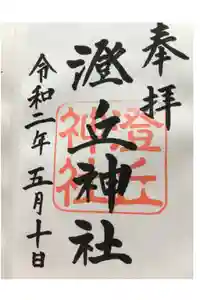 奉拝
澄丘神社
澄丘神社
令和二年五月十日